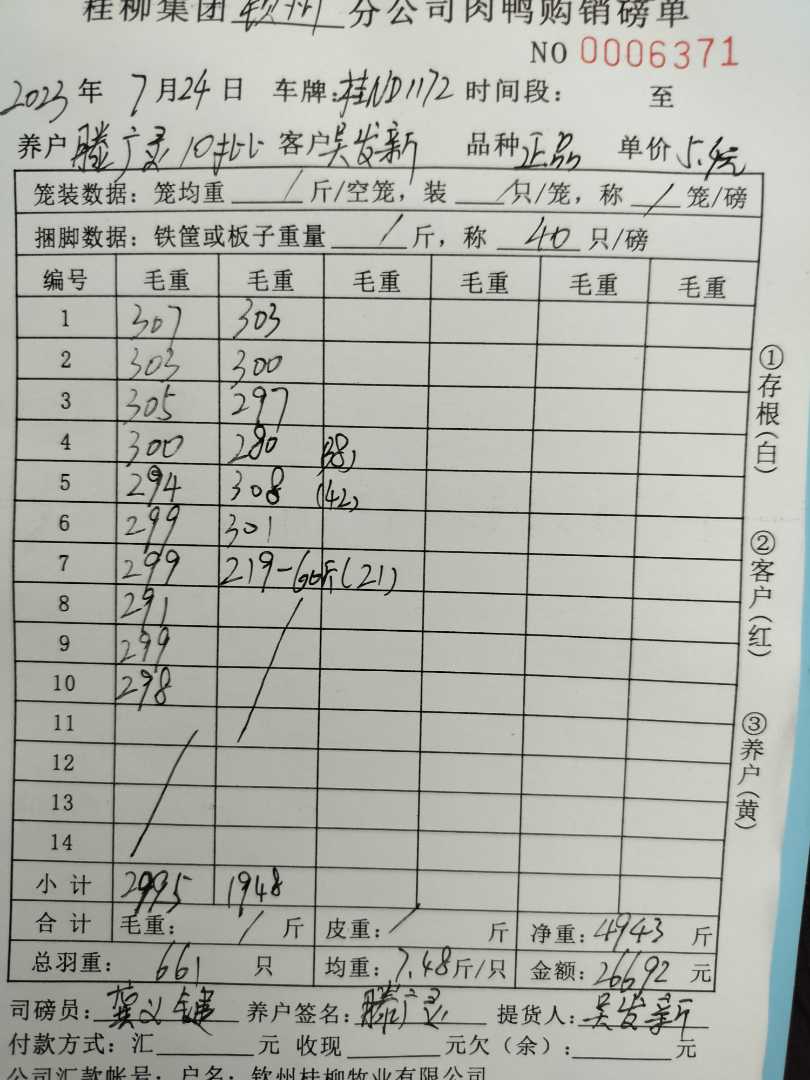 桂柳集团 钦州 分公司肉鸭购销磅单
NO 0006371
2023 年 7 月 24 日 车牌:桂ND1172 时间段: 至
养户 滕广灵 10批 客户 吴发新 品种 正品 单价 5.4元
笼装数据: 笼均重 / 斤/空笼, 装 / 只/笼, 称 / 笼/磅
捆脚数据: 铁筐或板子重量 / 斤, 称 40 只/磅
编号 毛重 毛重 毛重 毛重 毛重 毛重
1 307 303
2 303 300
3 305 297
4 300 280 (38)
5 294 308 (42)
6 299 301
7 299 219-66斤(21)
8 291
9 299
10 298
11
12
13
14
小计 2995 1948
合计 毛重: / 斤 皮重: / 斤 净重: 4943 斤
总羽重: 661 只 均重: 7.48斤/只 金额: 26692 元
司磅员: 龚义 养户签名: 滕广灵 提货人: 吴发新
付款方式: 汇 元 收现 元欠(余): 元
公司汇款帐号: 户名: 钦州桂柳牧业有限公司
①存根(白)
②客户(红)
③养户(黄)